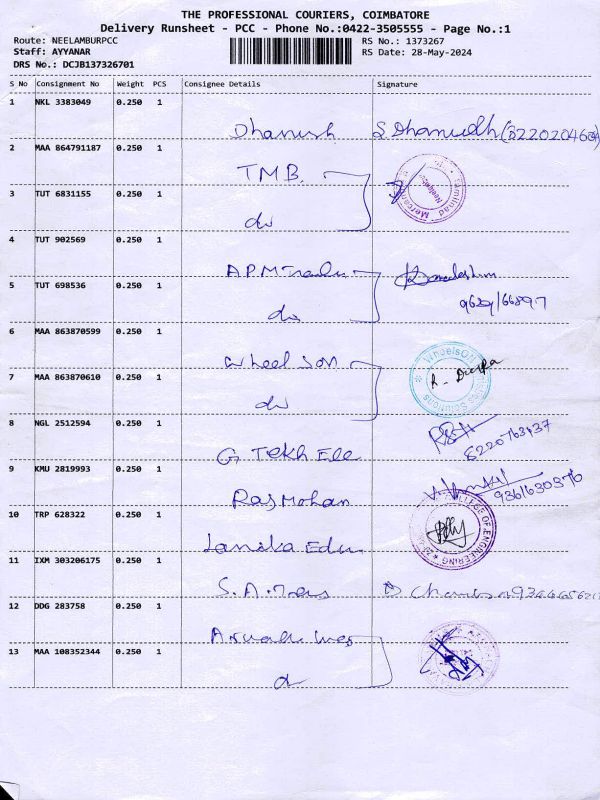 THE PROFESSIONAL COURIERS, COIMBATORE
Delivery Runsheet - PCC - Phone No.:0422-3505555 - Page No.:1
Route: NEELAMBURPCC
Staff: AYYANAR
DRS No.: DCJB137326701
RS No.: 1373267
RS Date: 28-May-2024
S No Consignment No Weight PCS Consignee Details Signature
1 NKL 3383049 0.250 1
Dhanush S Dhanudh
2 MAA 864791187 0.250 1
TMB.
3 TUT 6831155 0.250 1
do
4 TUT 902569 0.250 1
APM
5 TUT 698536 0.250 1
do
6 MAA 863870599 0.250 1
Wheel son
7 MAA 863870610 0.250 1
do R. Durga
8 NGL 2512594 0.250 1
G Tekh Ele
9 KMU 2819993 0.250 1
Rajmohan 9361630376
10 TRP 628322 0.250 1
Edu COLLEGE OF ENGINEERING
11 IXM 303206175 0.250 1
S.A.
12 DDG 283758 0.250 1
13 MAA 108352344 0.250 1
do